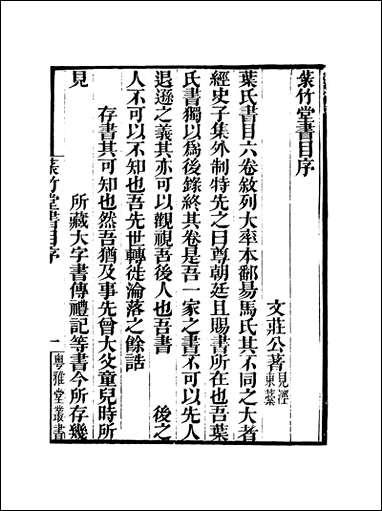 菉竹堂書目序
文莊公著見涇東藁
葉氏書目六卷敘列大率本鄱易馬氏其不同之大者
經史子集外制特先之曰尊朝廷且賜書所在也吾葉
氏書獨以爲後錄終其卷是吾一家之書不可以先人
退遜之義其亦可以觀視吾後人也吾書 後之
人不可以不知也吾先世轉徙淪落之餘誥
存書其可知也然吾猶及事先曾大父童兒時所
見 所藏大字書傳禮記等書今所存幾
菉竹堂書目序 一 粵雅堂叢書